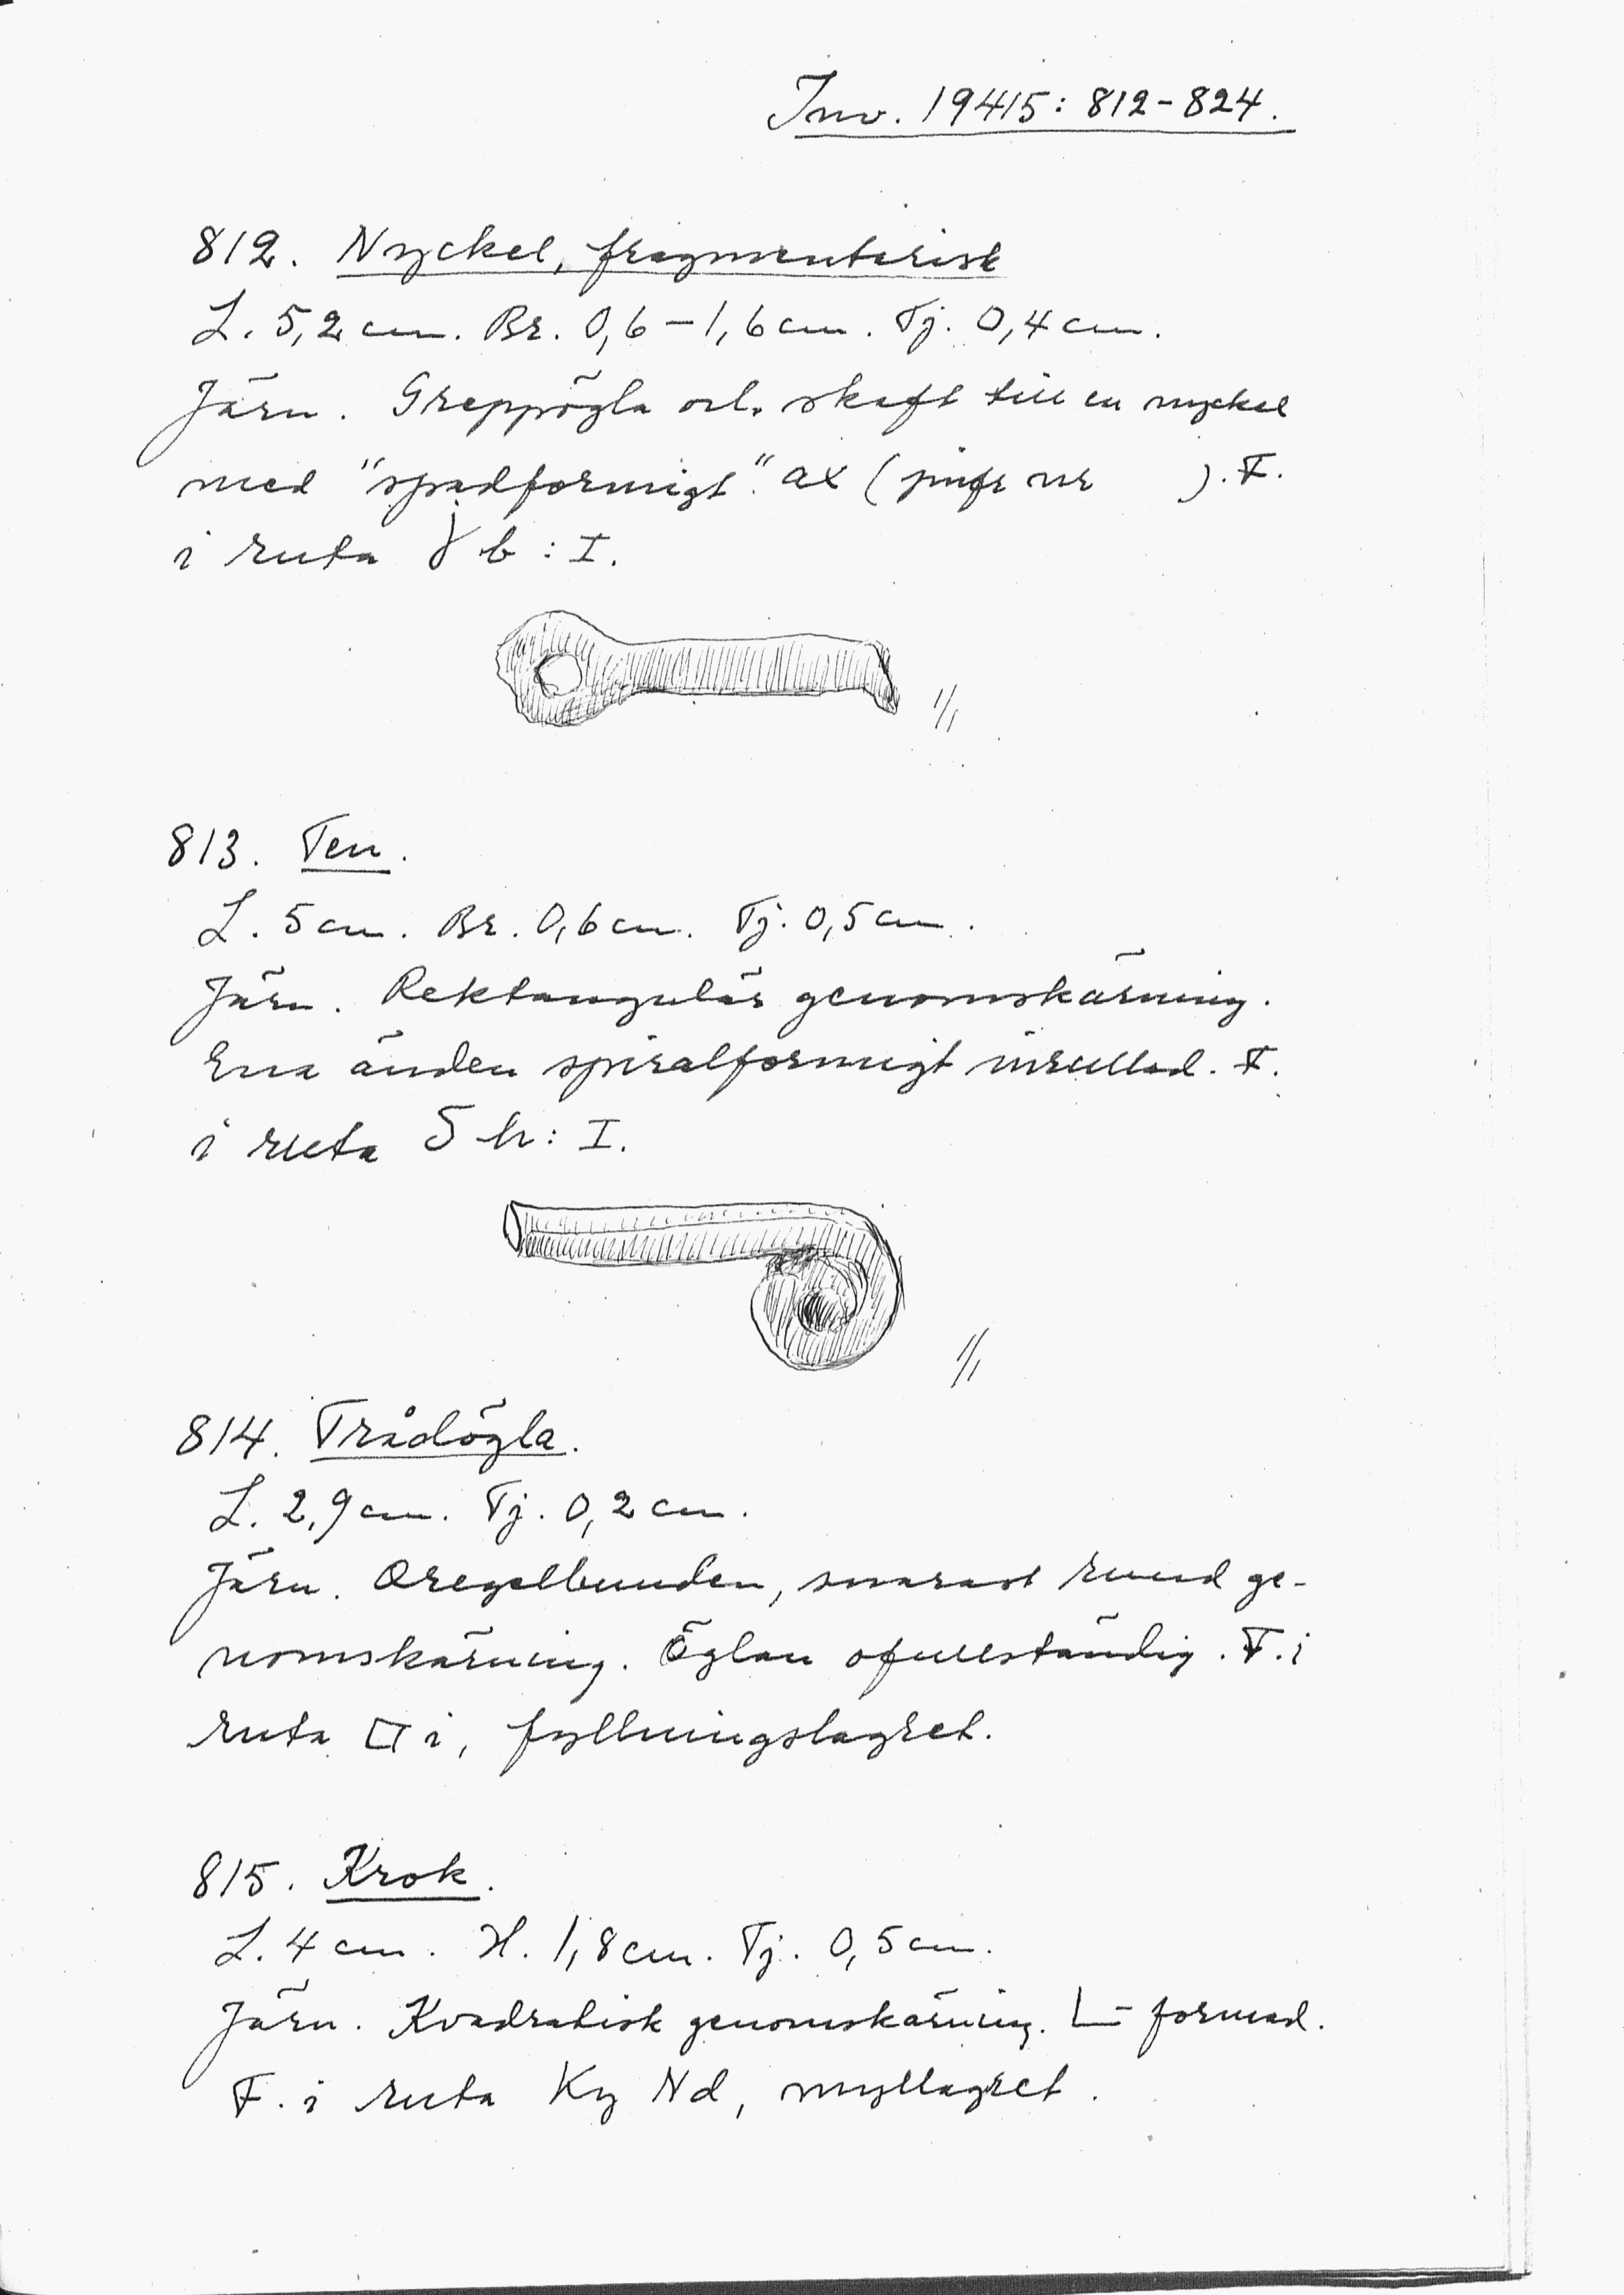 Inv. 19415: 812-824.
812. Nyckel, fragmentarisk
L. 5,2 cm. Br. 0,6-1,6 cm. Tj. 0,4 cm.
Järn. Greppögla och skaft till en nyckel
med "spadformigt" ax (jmfr nr ). F.
i ruta b : I.
1/1
813. Ten.
L. 5 cm. Br. 0,6 cm. Tj. 0,5 cm.
Järn. Rektangulär genomskärning.
Ena änden spiralformigt inrullad. F.
i ruta h: I.
1/1
814. Trådögla.
L. 2,9 cm. Tj. 0,2 cm.
Järn. Oregelbunden, snarast rund ge-
nomskärning. Öglan ofullständig. F. i
ruta □ i, fyllningslagret.
815. Krok.
L. 4 cm. H. 1,8 cm. Tj. 0,5 cm.
Järn. Kvadratisk genomskärning. L-formad.
F. i ruta Ky Nd, myllagret.